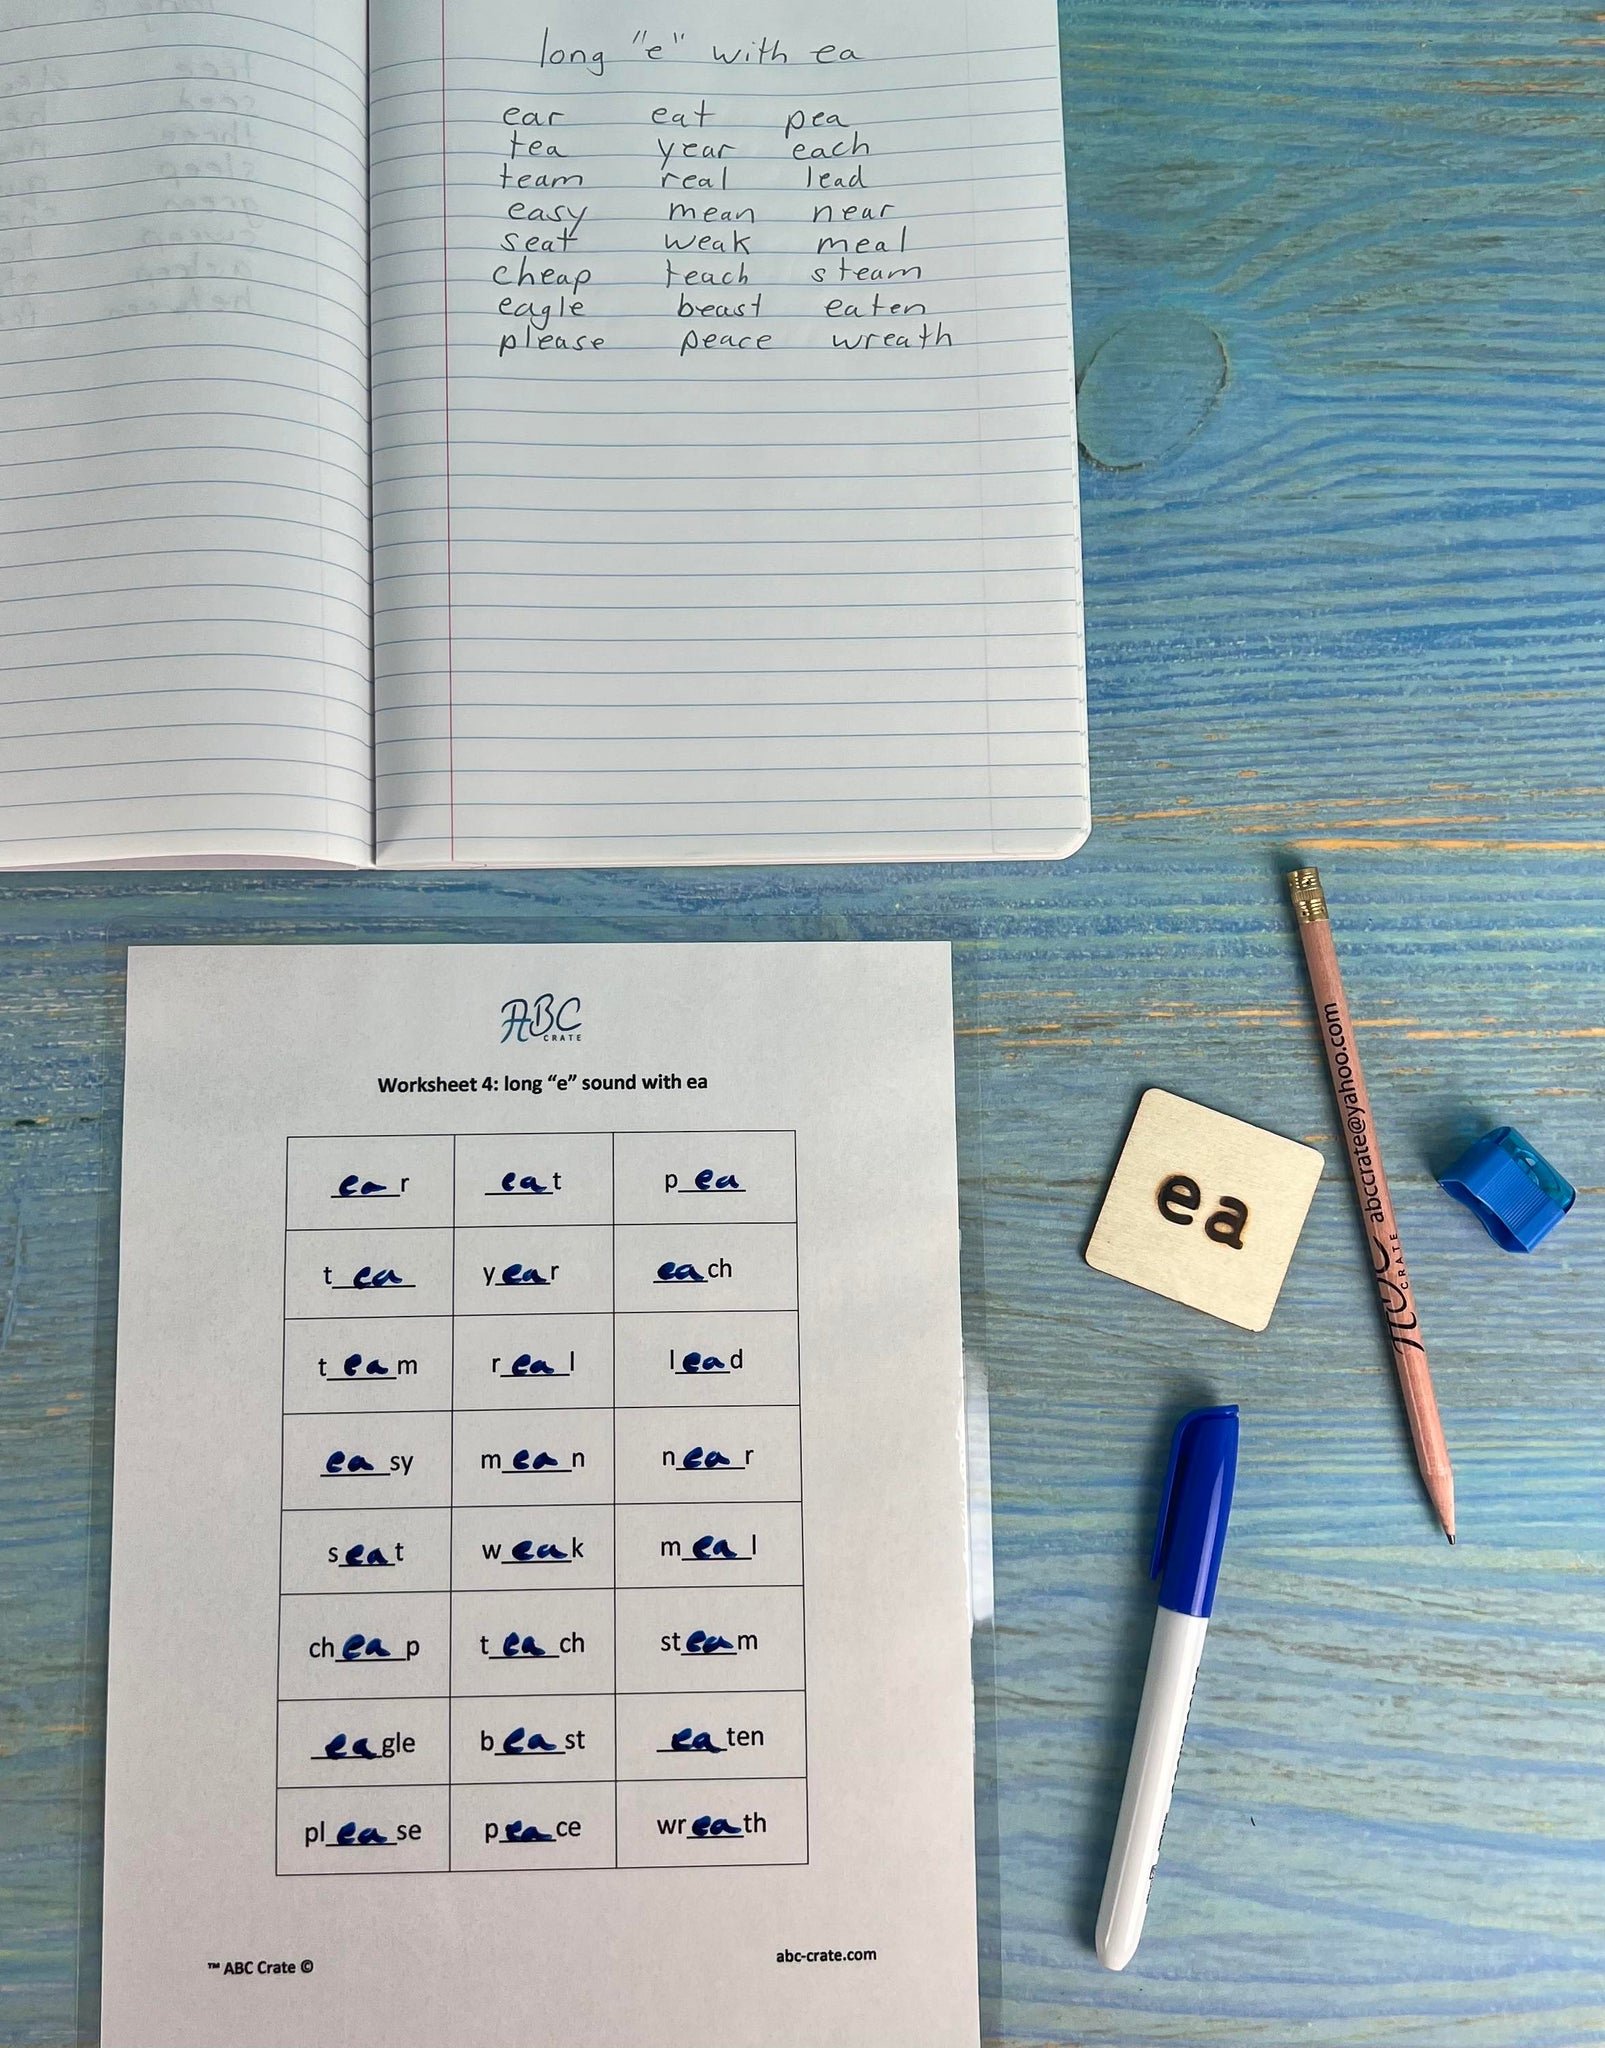 long "e" with ea
ear eat pea
tea year each
team real lead
easy mean near
seat weak meal
cheap teach steam
eagle beast eaten
please peace wreath
ABC
CRATE
Worksheet 4: long “e” sound with ea
ear eat pea
tea year each
team real lead
easy mean near
seat weak meal
cheap teach steam
eagle beast eaten
please peace wreath
™ ABC Crate ©
abc-crate.com
ea
ABC CRATE abccrate@yahoo.com